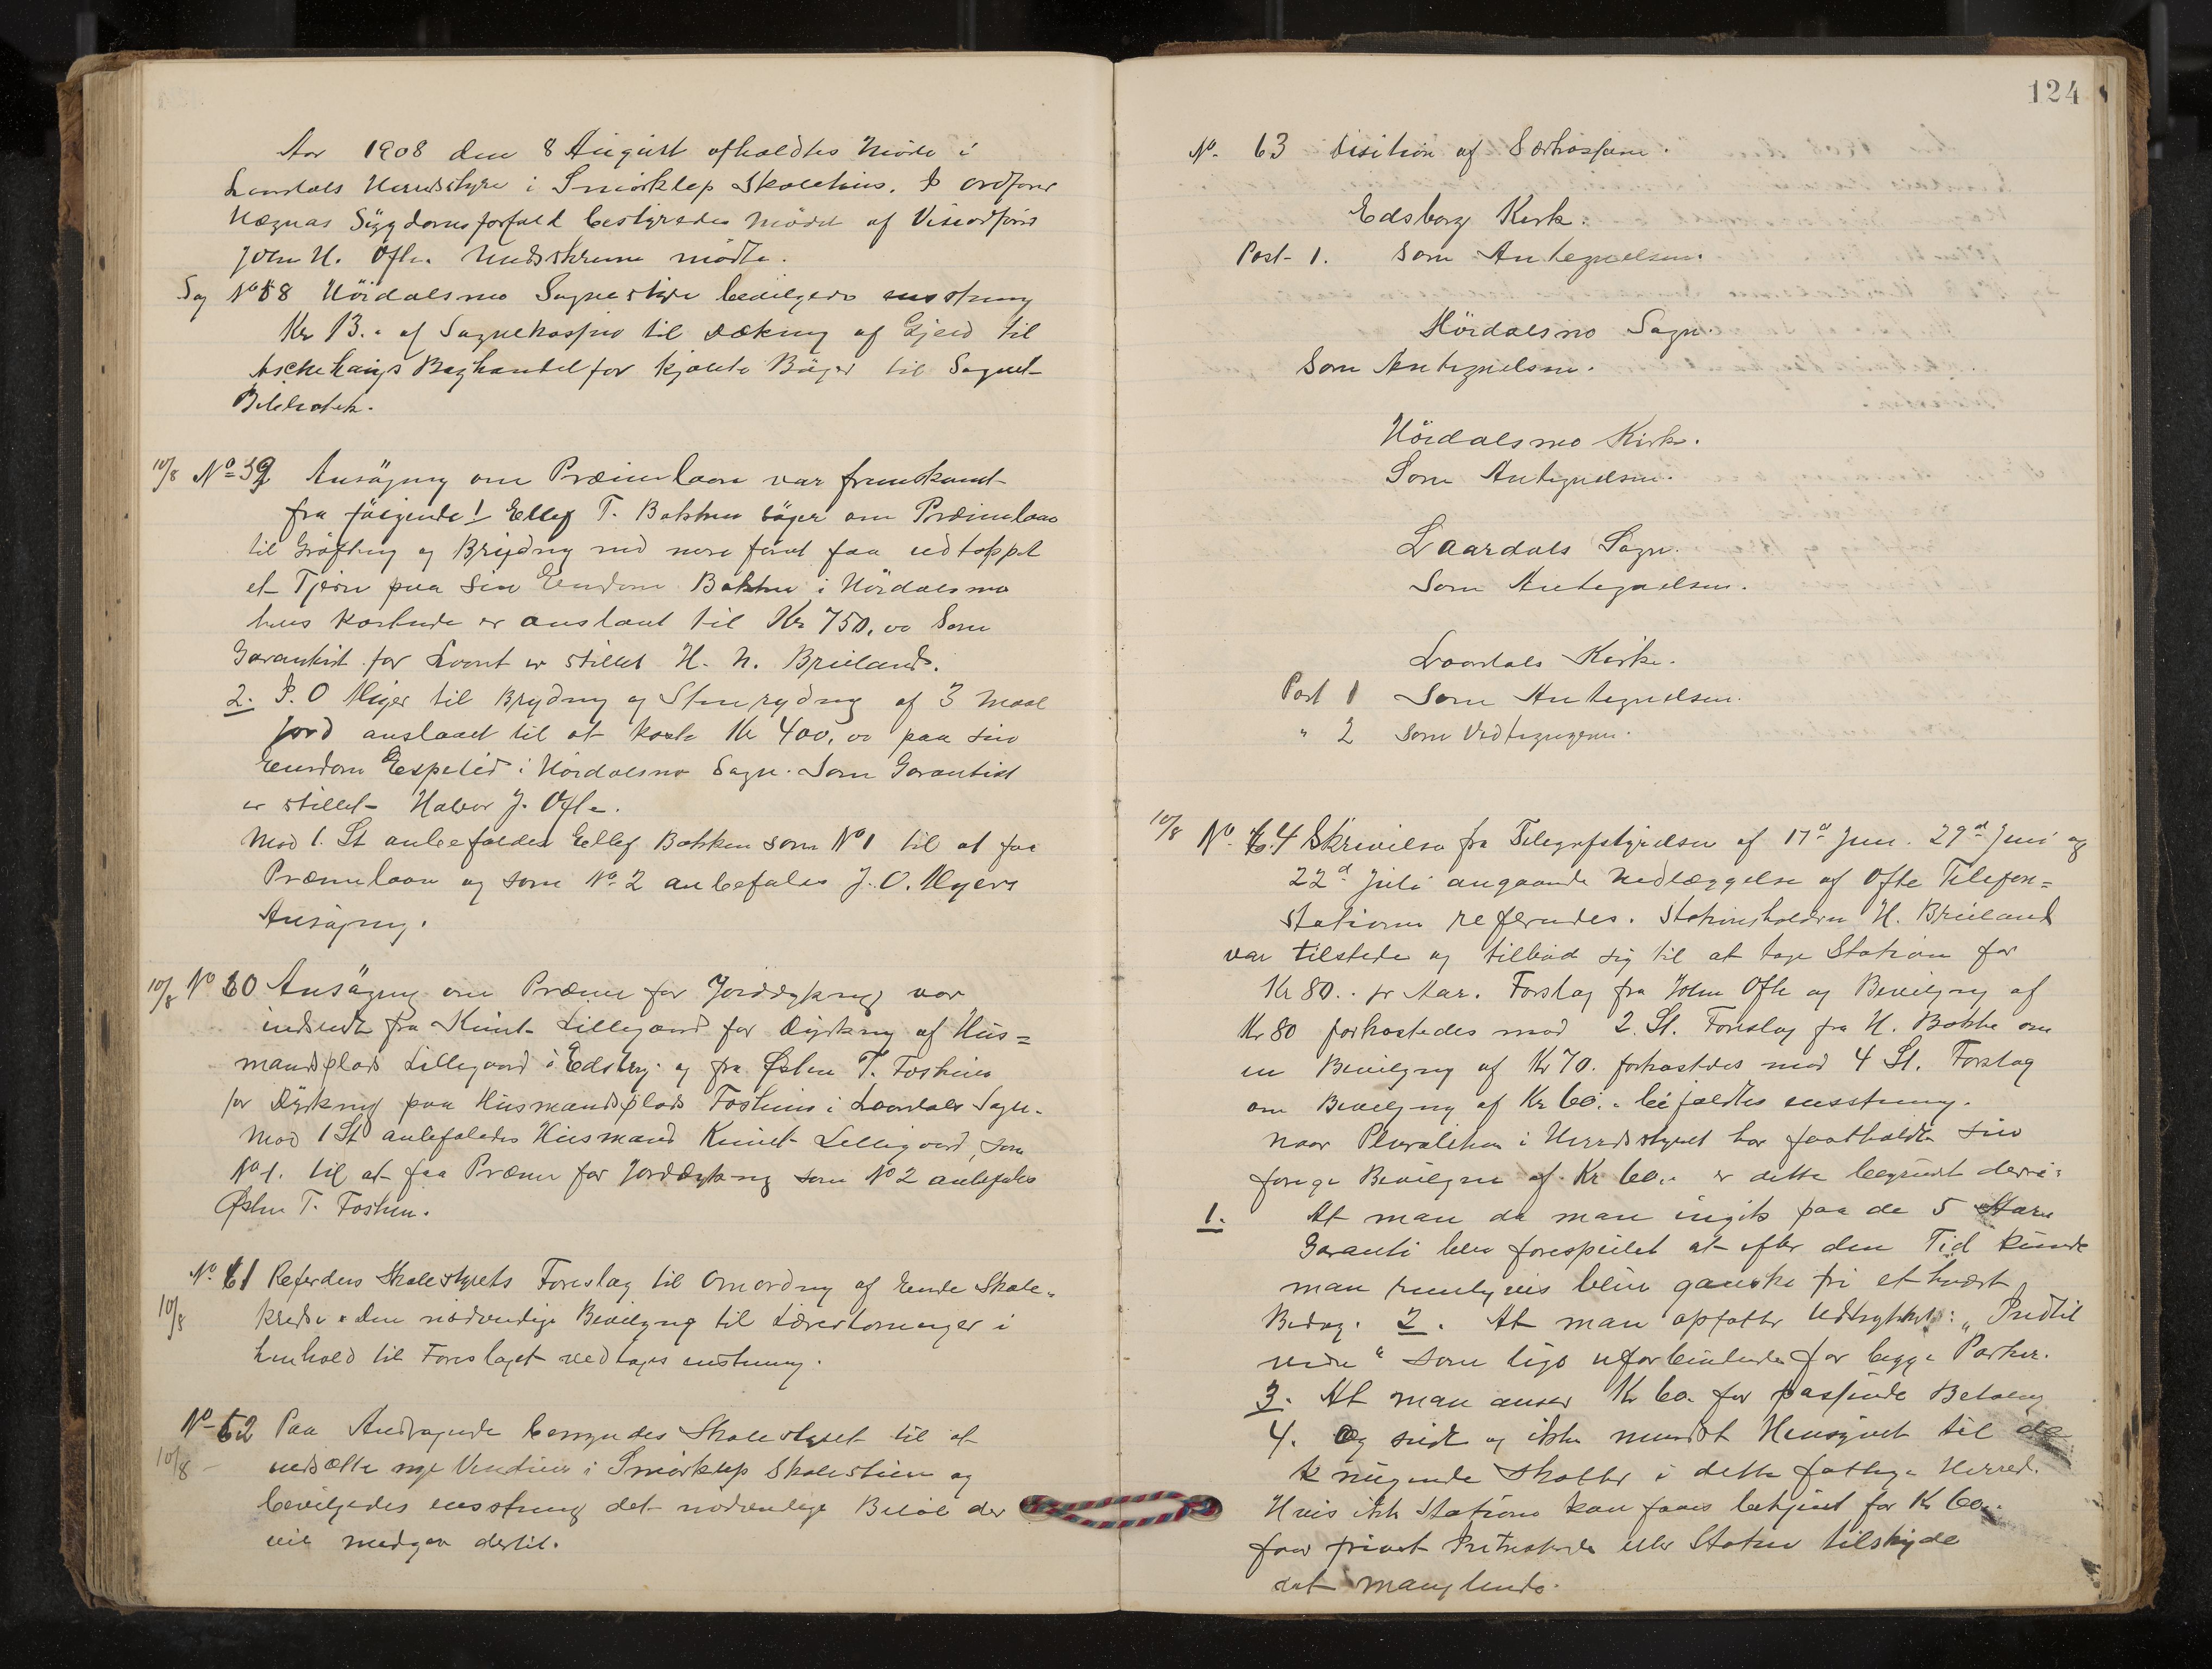 Aar 1908 den 8 August afholdtes Møde i
Laardals Herredstyre i Smørklep Skolehus. P ordfører
Sygdomsforfald bestyredes Mødet af Viseordfører
John H. Ofte. mødte.
Sag No 58 Höidalsmo Sognestyre bevilgede enstemmig
Kr 13.- af Sognekassen til Dækning af Gjeld til
Aschehaugs Boghandel for kjøbte Bøger til Sognet
Bibliotek.
10/8 No 59 Ansögning om Præmielaan var fremkommet
fra følgende! Ellef T. Bakken söger om Præmielaan
til Gröfting og Brydning med mere faaet udtappet
et Tjern paa sin Eiendom Bakken i Höidalsmo
hvis Kostende er anslaaet til Kr 750,00 Som
Garantist for Laanet er stillet H. N. Brieland.
2. P. O Myer til Brydning og Stenrydning af 3 Maal
Jord anslaaet til at koste Kr 400,00 paa sin
Eiendom Espelid i Höidalsmo Sogn. Som Garantist
er stillet Halvor J. Ofte.
Mod 1. St anbefaledes Ellef Bakken som No 1 til at faa
Præmielaan og som No 2 anbefales J. O. Myers
Ansögning.
10/8 No 60 Ansögning om Præmie for Jorddyrkning var
indsendt fra Knut Lillegaard for Dyrkning af Hus=
mandsplads Lillegaard i Edsborg og fra Østen T. Foshien
for Dyrkning paa Husmandsplads Foshien i Laardals Sogn.
Mod 1 St anbefaledes Husmand Knut Lillegaard, som
No 1. til at faa Præmie for Jorddyrkning som No 2 anbefales
Østen T. Foshien.
No 61 Referdes Skolestyrets Foreslag til Omordning af Skole-
10/8 kredse den nödvendige Bevilgning til Lærerlønninger i
henhold til Foreslaget vedtoges enstemmig.
No 62 Paa Andragende bemyndes Skolestyret til at
10/8 indsætte nye Vinduer i Smørklep Skolestue og
bevilgedes enstemmig det nødvendige Beløb der
vil medgaa dertil.
124
No. 63 Desition af Sorkasserne.
Edsborg Kirke.
Post 1. Som Antegnelsen.
Höidalsmo Sogn.
Som Antegnelsen.
Höidalsmo Kirke.
Som Antegnelsen.
Laardals Sogn.
Som Antegnelsen.
Laardals Kirke.
Post 1 Som Antegnelsen.
" 2 Som Vedtegningen.
10/8 No. 64 Skrivelse fra Telegrafstyrelsen af 17d Juni. 29d Juni og
22d Juli angaaende Nedlæggelse af Ofte Telefon=
stationen refereredes. Stationsholderen H. Brieland
var tilstede og tilbød sig til at tage Station for
Kr 80.. pr Aar. Forslag fra John Ofte og Bevilgning af
Kr 80 forkastedes mod 2. St. Forslag fra H. Bakke om
en Bevilgning af Kr 70. forkastedes mod 4 St. Forslag
om Bevilgning af Kr 60.. bifaldtes enstemmig.
Naar Pluraliteten i Herredsstyret har fastholdt sin
forige Bevilgning af Kr 60.. er dette begrundt deri:
1. At man da man ingik paa de 5 Aars
Garanti blev forespeilet at efter den Tid kunde
man rimeligvis blive ganske fri ethvert
Bidrag. 2. At man opfatter Udtrykket: „Indtil
videre“ som lige uforbindende for begge Parter.
3. At man anser Kr 60. for passende Betaling
4. Og sidst og ikke mindst Hensynet til de
knugende Skatter i dette fattige Herred.
Hvis ikke Stationen kan faaes betjent for Kr 60..
faar privat Intresserede eller Staten tilskyde
det manglende.